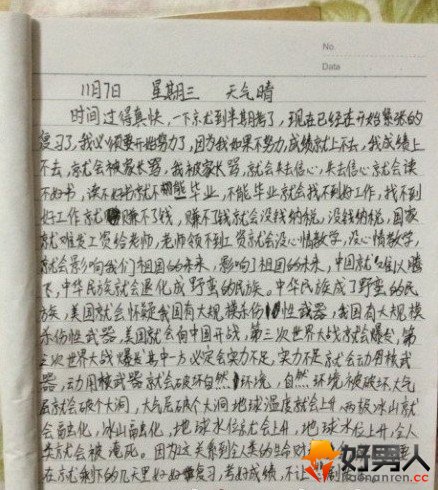 No.
Data
11月7日 星期三 天气晴
时间过得真快，一下就到半期考了，现在已经在开始紧张的
复习了，我必须要开始努力了，因为我如果不努力，成绩就上不去，我成绩上
不去，就会被家长骂，我被家长骂，就会失去信心，失去信心就会读
不好书，读不好书就不能毕业，不能毕业就会找不到好工作，找不到
好工作就赚不了钱，赚不了钱就会没钱纳税，没钱纳税，国家
就难发工资给老师，老师领不到工资就会没心情教学，没心情教学，
就会影响我们祖国的未来，影响了祖国的未来，中国就难以腾
飞，中华民族就会退化成野蛮的民族。中华民族成了野蛮的民
族，美国就会怀疑我国有大规模杀伤性武器，我国有大规模
杀伤性武器，美国就会向中国开战，第三次世界大战就会爆发，第
三次世界大战爆发其中一方必定会实力不足，实力不足就会动用核武
器，动用核武器就会破坏自然环境，自然环境被破坏大气
层就会破个大洞，大气层破个大洞地球温度就会上升，两极冰山就
会融化，冰山融化，地球水位就会上升，地球水位上升，全人
类就会被淹死。因为这关系到全人类的生命财
在就剩下的几天里好好复习，考好成绩，不让
好男人
onggentleman.cn